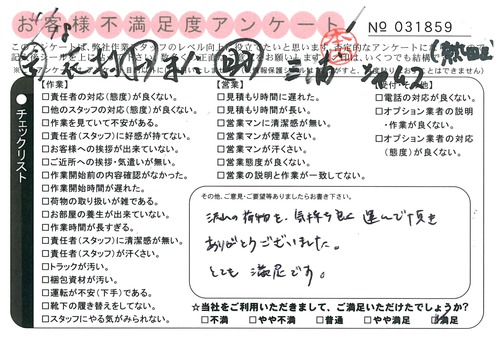 お客様不満足度アンケート
No 031859
チェックリスト
【作業】
□責任者の対応(態度)が良くない。
□他のスタッフの対応(態度)が良くない。
□作業を見ていて不安がある。
□責任者(スタッフ)に好感が持てない。
□お客様への挨拶が出来ていない。
□ご近所への挨拶・気遣いが無い。
□作業開始前の内容確認がなかった。
□作業開始時間が遅れた。
□荷物の取り扱いが雑である。
□お部屋の養生が出来ていない。
□作業時間が長すぎる。
□責任者(スタッフ)に清潔感が無い。
□責任者(スタッフ)が汗くさい。
□トラックが汚い。
□梱包資材が汚い。
□運転が不安(下手)である。
□靴下の履き替えをしてない。
□スタッフにやる気がみられない。
【営業】
□見積もり時間に遅れた。
□見積もり時間が長い。
□営業マンに清潔感が無い。
□営業マンが煙草くさい。
□営業マンが汗くさい。
□営業態度が良くない。
□営業の説明と作業が一致してない。
□電話の対応が良くない。
□オプション業者の説明
・作業が良くない。
□オプション業者の対応
(態度)が良くない。
その他、ご意見・ご要望等ありましたらお書き下さい。
沢山の荷物を、気持ち良く運んで頂き
ありがとうございました。
とても満足です。
☆当社をご利用いただきまして、ご満足いただけたでしょうか?
□不満 □やや不満 □普通 □やや満足 □満足